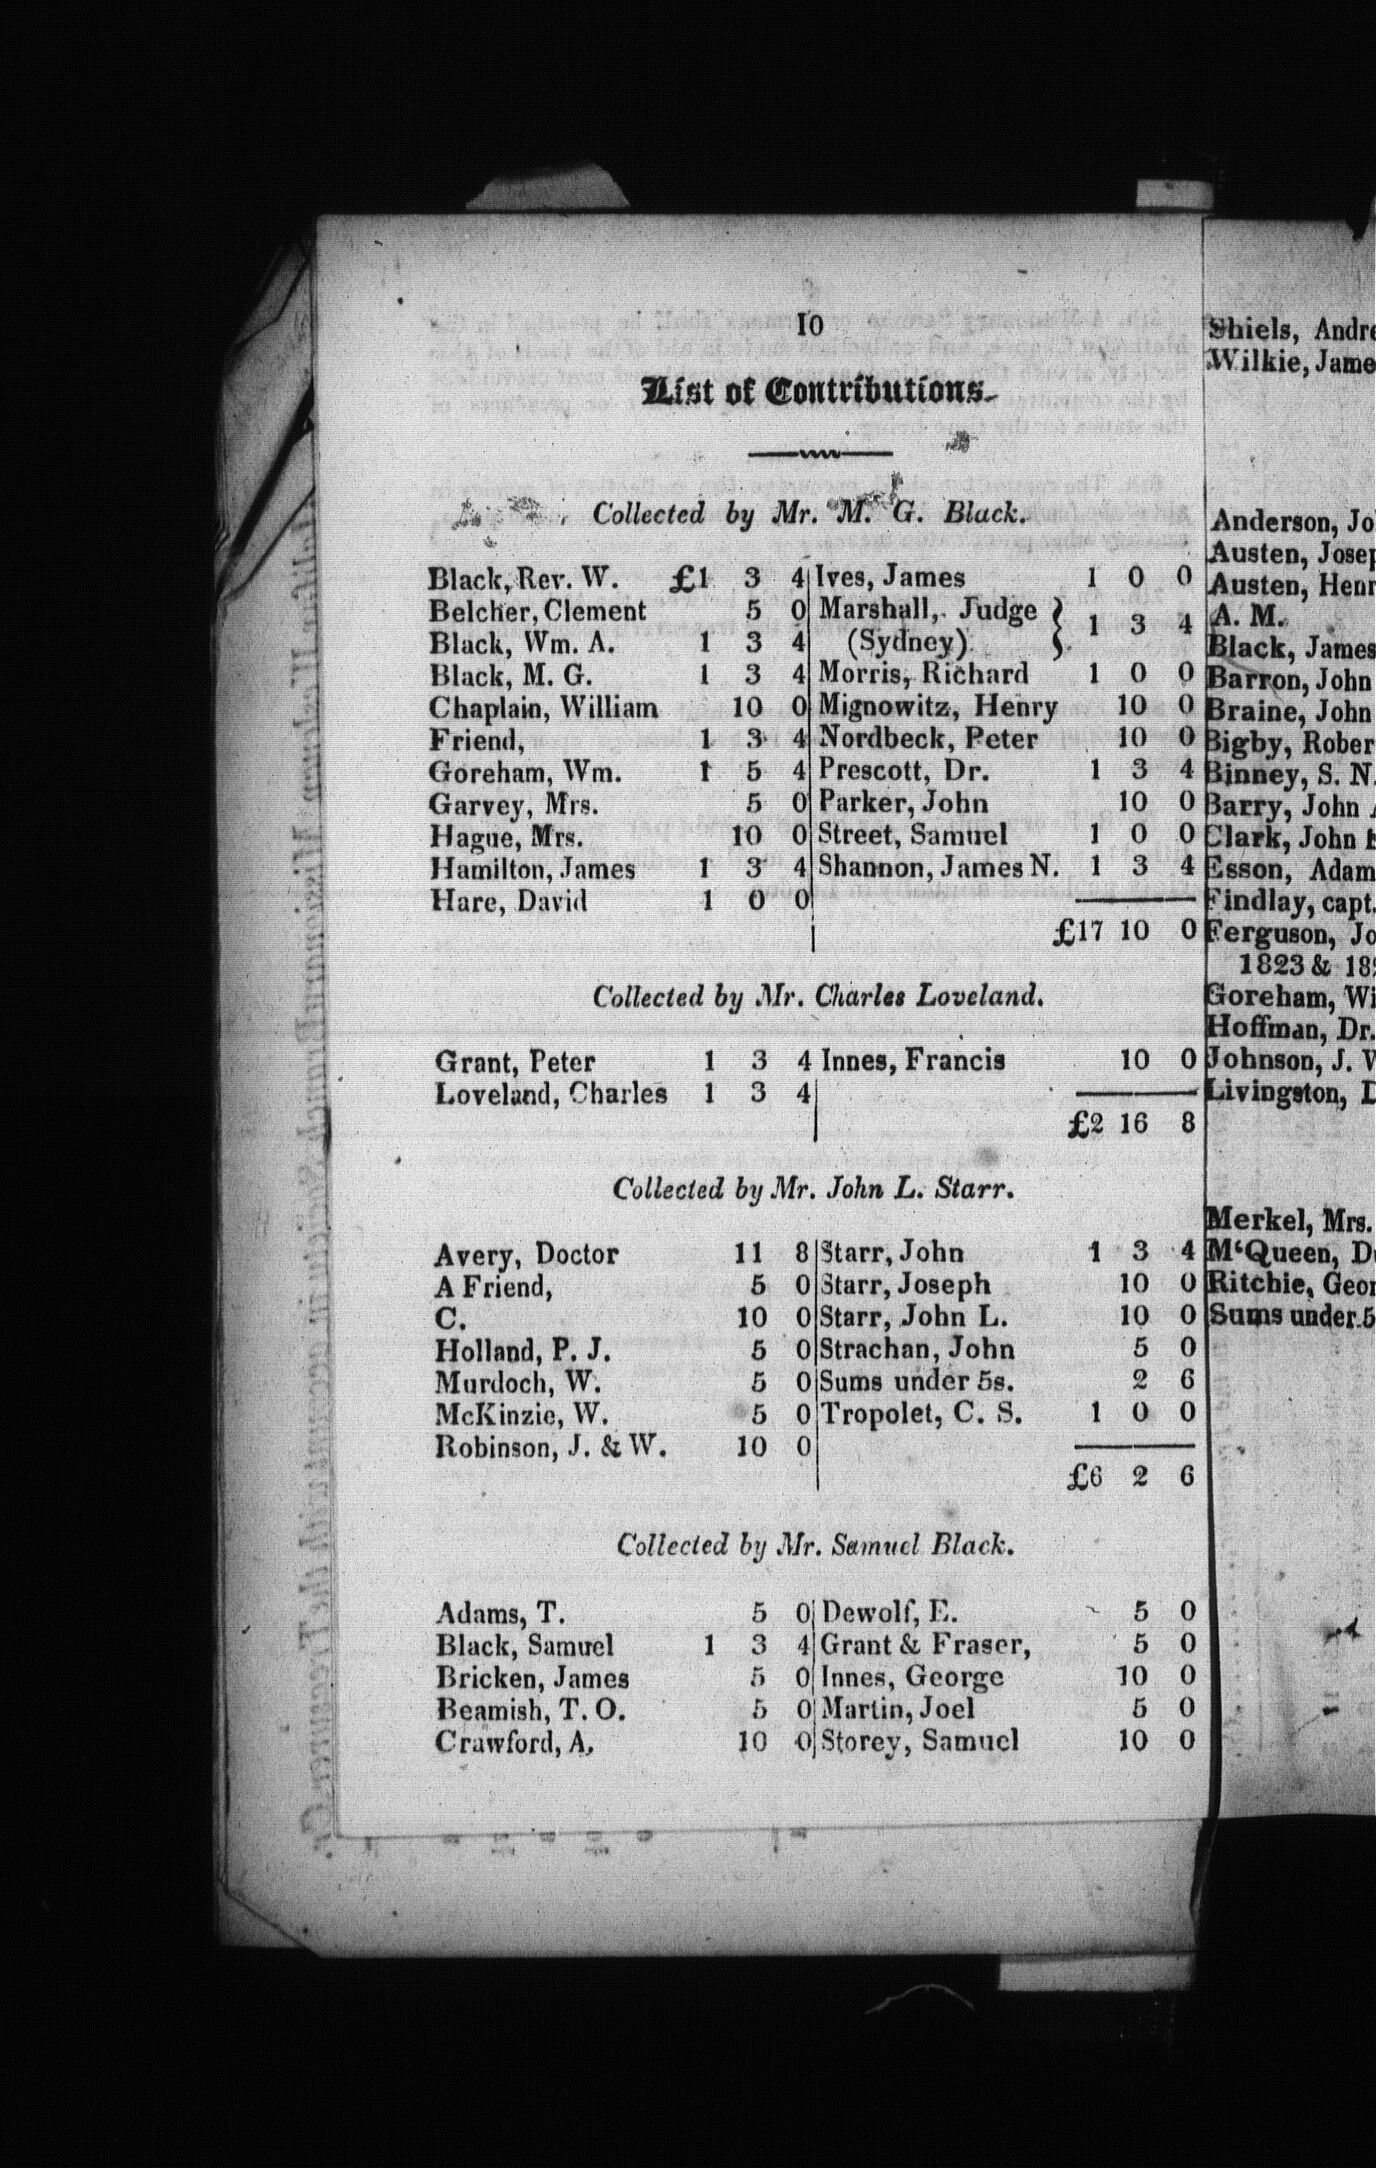 10
List of Contributions.
Collected by Mr. M. G. Black.
Black, Rev. W. £1 3 4
Belcher, Clement 5 0
Black, Wm. A. 1 3 4
Black, M. G. 1 3 4
Chaplain, William 10 0
Friend, 1 3 4
Goreham, Wm. 1 5 4
Garvey, Mrs. 5 0
Hague, Mrs. 10 0
Hamilton, James 1 3 4
Hare, David 1 0 0
Ives, James 1 0 0
Marshall, Judge
(Sydney) } 1 3 4
Morris, Richard 1 0 0
Mignowitz, Henry 10 0
Nordbeck, Peter 10 0
Prescott, Dr. 1 3 4
Parker, John 10 0
Street, Samuel 1 0 0
Shannon, James N. 1 3 4
£17 10 0
Collected by Mr. Charles Loveland.
Grant, Peter 1 3 4
Loveland, Charles 1 3 4
Innes, Francis 10 0
£2 16 8
Collected by Mr. John L. Starr.
Avery, Doctor 11 8
A Friend, 5 0
C. 10 0
Holland, P. J. 5 0
Murdoch, W. 5 0
McKinzie, W. 5 0
Robinson, J. & W. 10 0
Starr, John 1 3 4
Starr, Joseph 10 0
Starr, John L. 10 0
Strachan, John 5 0
Sums under 5s. 2 6
Tropolet, C. S. 1 0 0
£6 2 6
Collected by Mr. Samuel Black.
Adams, T. 5 0
Black, Samuel 1 3 4
Bricken, James 5 0
Beamish, T. O. 5 0
Crawford, A. 10 0
Dewolf, E. 5 0
Grant & Fraser, 5 0
Innes, George 10 0
Martin, Joel 5 0
Storey, Samuel 10 0
Shiels, Andre
Wilkie, Jame
Anderson, Jo
Austen, Josep
Austen, Henr
A. M.
Black, James
Barron, John
Braine, John
Bigby, Rober
Binney, S. N.
Barry, John
Clark, John
Esson, Adam
Findlay, capt.
Ferguson, Jo
1823 & 18
Goreham, Wi
Hoffman, Dr.
Johnson, J.
Livingston,
Merkel, Mrs.
M‘Queen, D
Ritchie, Geor
Sums under 5